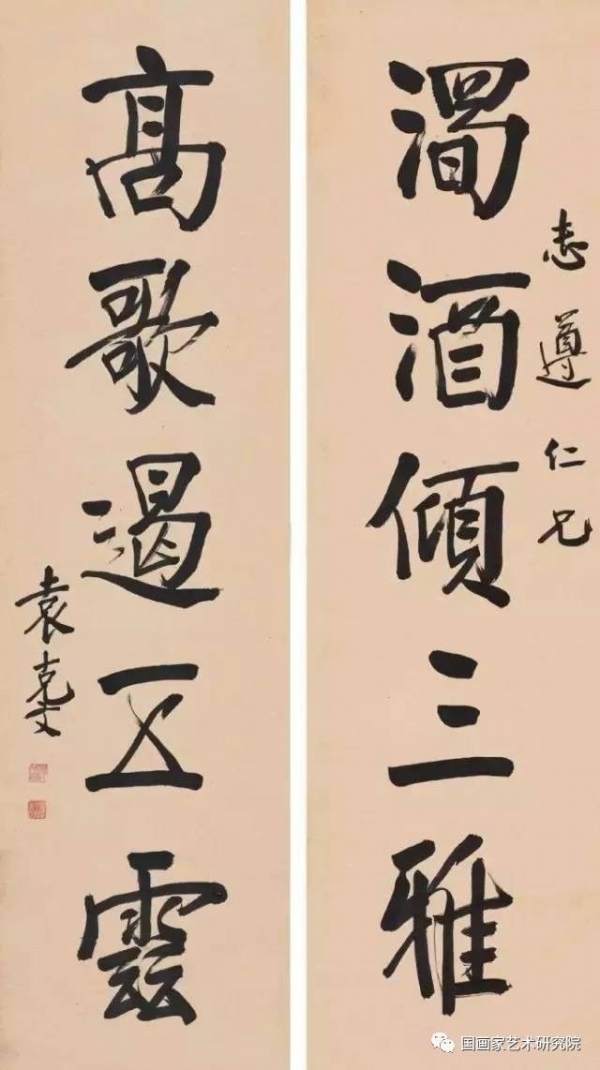 志遵仁兄
濁酒傾三雅
高歌遏五雲
袁克文
国画家艺术研究院